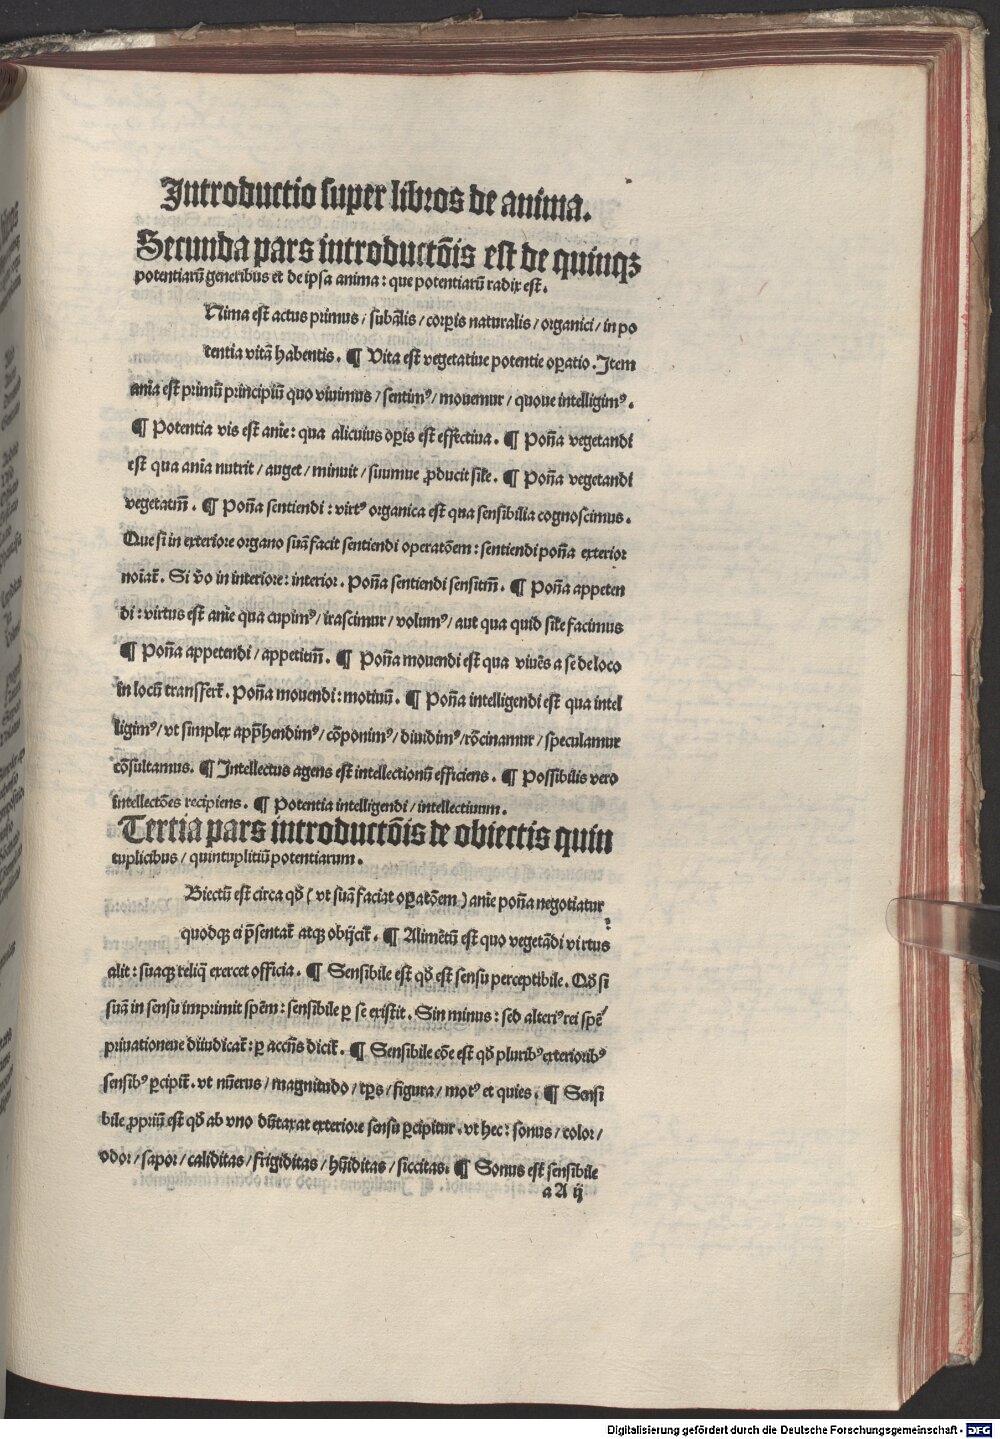 Introductio super libros de anima.
Secunda pars introductõis est de quinqꝫ
potentiarũ generibus et de ipsa anima: que potentiarũ radix est.
Nima est actus primus/ subãlis/ corꝑis naturalis/ organici/ in po
tentia vitã habentis. ¶ Vita est vegetatiue potentie oꝑatio. Item
anĩa est primũ principiũ quo viuimus/ sentimꝰ/ mouemur/ quoue intelligimꝰ.
¶ Potentia vis est anĩe: qua alicuius oꝑis est effectiua. ¶ Poña vegetandi
est qua anĩa nutrit/ auget/ minuit/ suumue ꝓducit siĺe. ¶ Poña vegetandi
vegetatiũ. ¶ Poña sentiendi: virtꝰ organica est qua sensibilia cognoscimus.
Que si in exteriore organo suã facit sentiendi operatõem: sentiendi poña exterior
noĩat̃. Si ṽo in interiore: interior. Poña sentiendi sensitiũ. ¶ Poña appeten
di: virtus est anĩe qua cupimꝰ/ irascimur/ volumꝰ/ aut qua quid siĺe facimus
¶ Poña appetendi/ appetitiũ. ¶ Poña mouendi est qua viuẽs a se de loco
in locũ transfert̃. Poña mouendi: motiuũ. ¶ Poña intelligendi est qua intel
ligimꝰ/ vt simplex app̃hendimꝰ/ cõponimꝰ/ diuidimꝰ/ rõcinamur/ speculamur
cõsultamus. ¶ Intellectus agens est intellectionũ efficiens. ¶ Possibilis vero
intellectões recipiens. ¶ Potentia intelligendi/ intellectiuum.
Tertia pars introductõis de obiectis quin
tuplicibus/ quintuplitiũ potentiarum.
Biectũ est circa qđ (vt suã faciat oꝑatõem) anĩe poña negotiatur
quodqꝫ ei p̃sentat̃ atqꝫ obijcit̃. ¶ Alimẽtũ est quo vegetãdi virtus
alit: suaqꝫ reliq̃ exercet officia. ¶ Sensibile est qđ est sensu perceptibile. Qđ si
suã in sensu imprimit spẽm: sensibile ꝑ se existit. Sin minus: sed alteriꝰ rei spẽ
priuationeue diiudicat̃: ꝑ acc̃ns dicit̃. ¶ Sensibile cõe est qđ pluribꝰ exterioribꝰ
sensibꝰ ꝑcipit̃. vt nũerus/ magnitudo/ tꝑs/ figura/ motꝰ et quies. ¶ Sensi
bile ꝓpriũ est qđ ab vno dũtaxat exteriore sensu ꝑcipitur. vt hec: sonus/ color/
odor/ sapor/ caliditas/ frigiditas/ hũiditas/ siccitas. ¶ Sonus est sensibile
a A ij
Digitalisierung gefördert durch die Deutsche Forschungsgemeinschaft - DFG